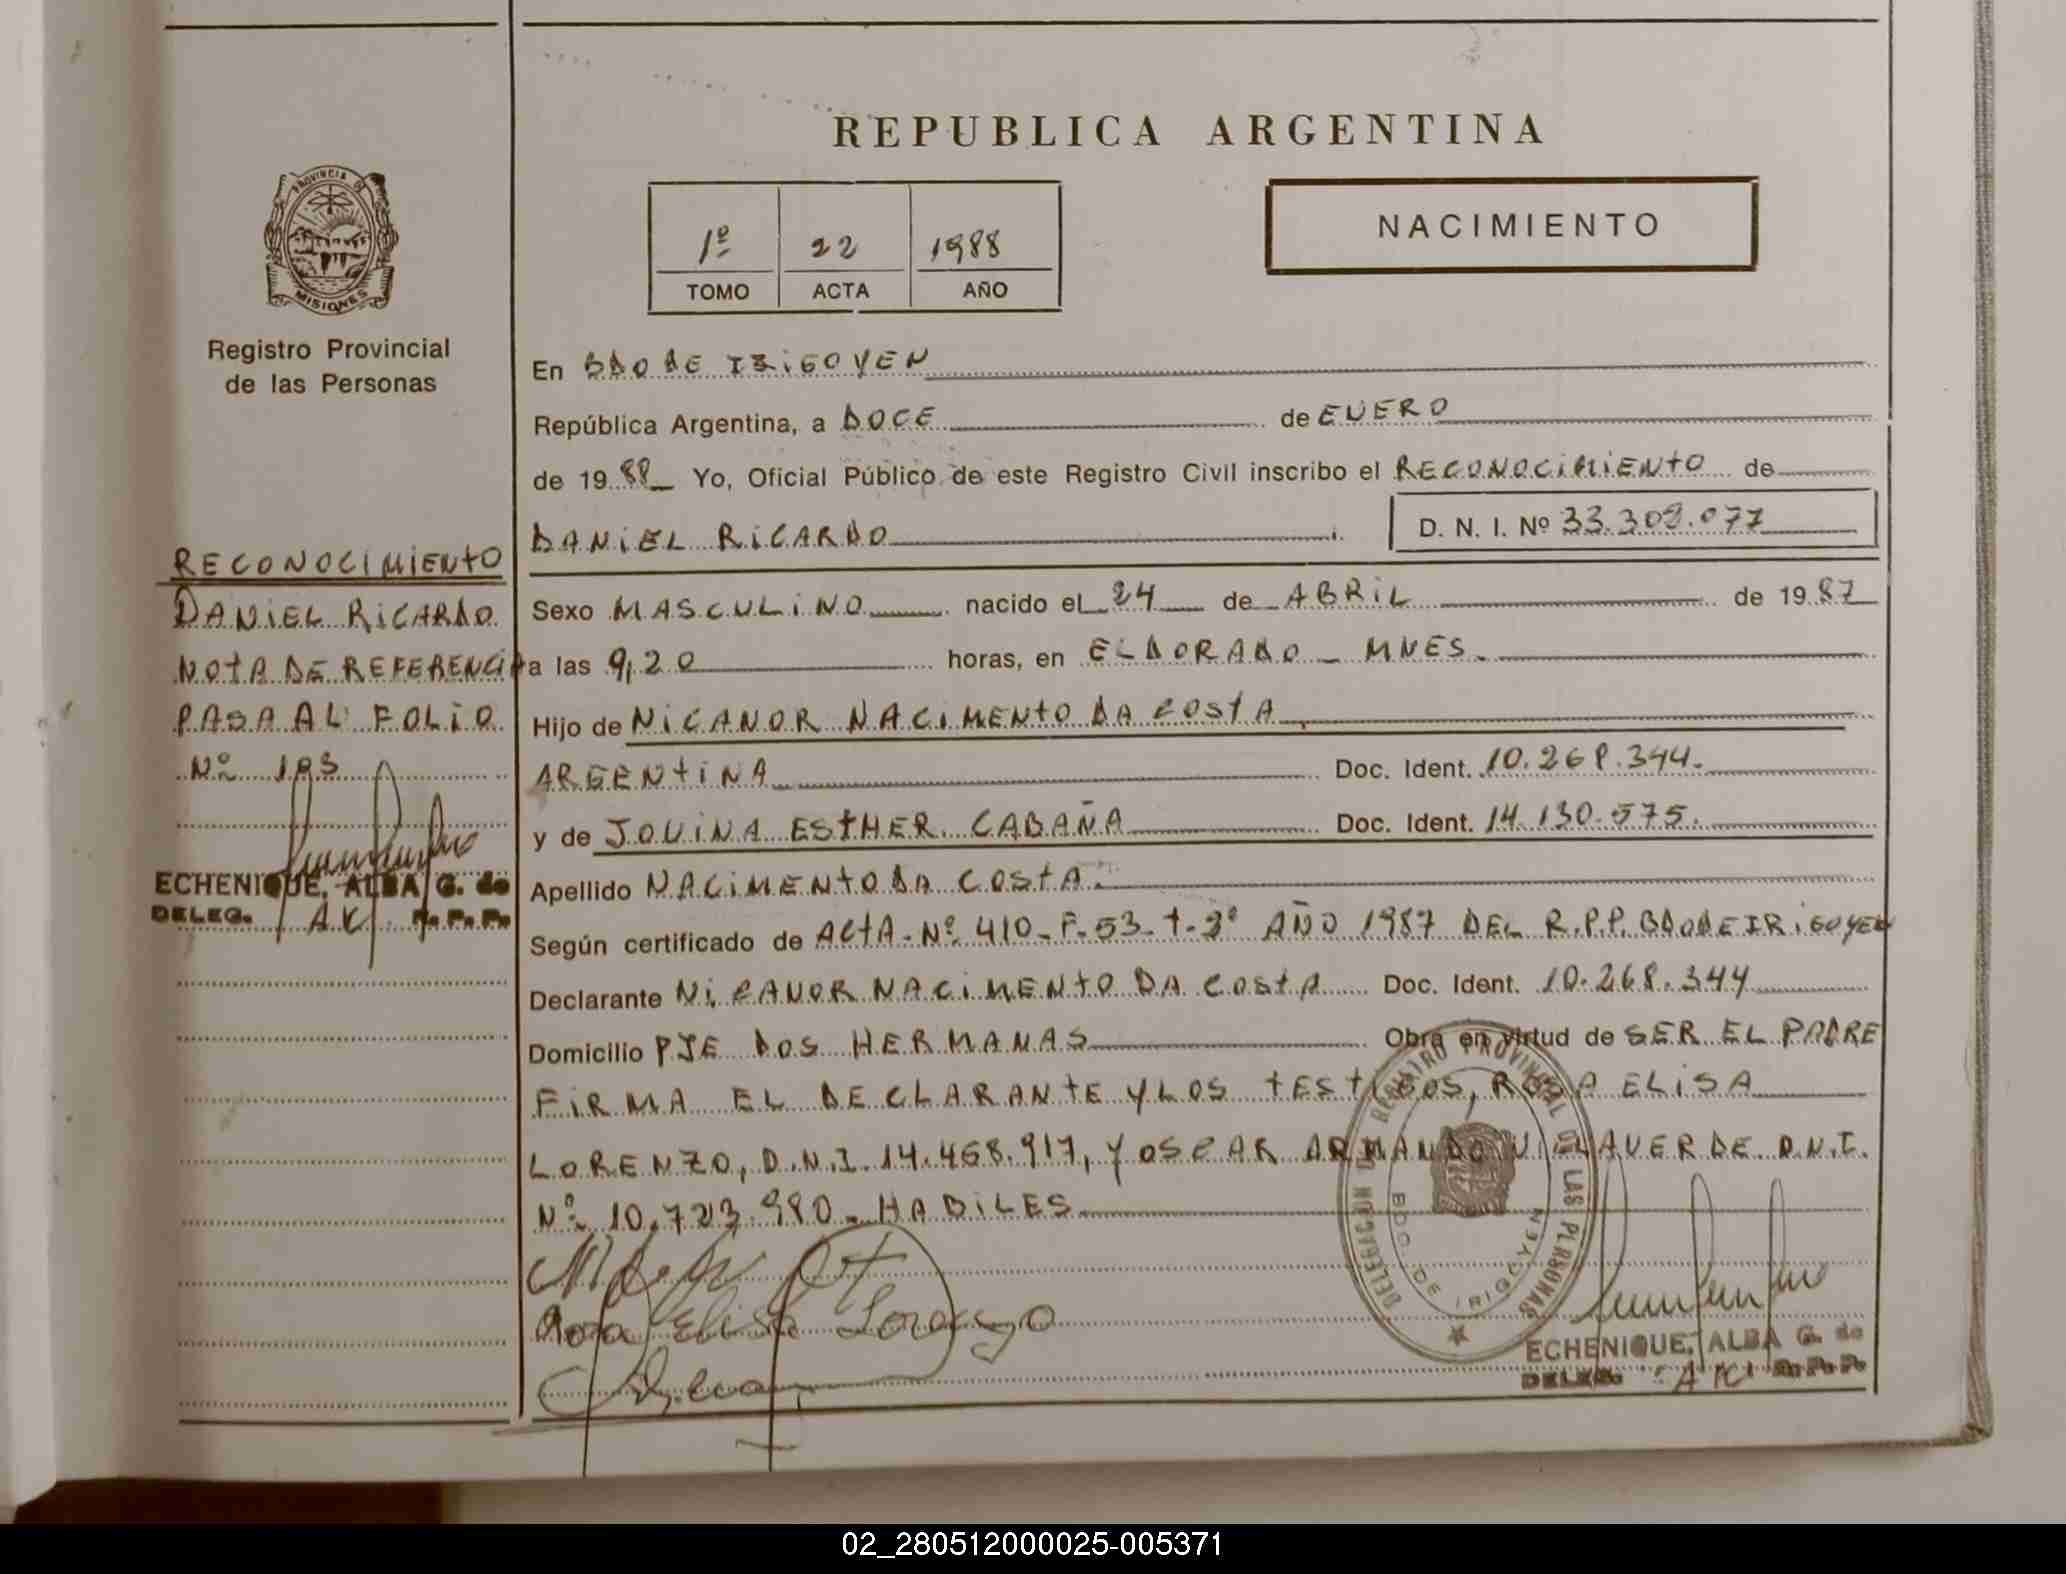 REPUBLICA ARGENTINA
NACIMIENTO
1º 22 1988
TOMO ACTA AÑO
PROVINCIA DE
MISIONES
Registro Provincial
de las Personas
RECONOCIMIENTO
DANIEL RICARDO
NOTA DE REFERENCIA
PASA AL FOLIO
Nº 193
ECHENIQUE, ALBA G. de
DELEG. R. P. P.
En BDO DE IRIGOYEN
República Argentina, a DOCE de ENERO
de 1988 Yo, Oficial Público de este Registro Civil inscribo el RECONOCIMIENTO de
DANIEL RICARDO D. N. I. Nº 33.309.077
Sexo MASCULINO nacido el 24 de ABRIL de 1987
a las 9,20 horas, en ELDORADO - MNES.
Hijo de NICANOR NACIMENTO DA COSTA
ARGENTINA Doc. Ident. 10.268.344.
y de JOVINA ESTHER CABAÑA Doc. Ident. 14.130.575.
Apellido NACIMENTO DA COSTA.
Según certificado de ACTA-Nº 410-F-53-T-2º AÑO 1987 DEL R.P.P. BDO DE IRIGOYEN
Declarante NICANOR NACIMENTO DA COSTA Doc. Ident. 10.268.344
Domicilio PJE DOS HERMANAS Obra en virtud de SER EL PADRE
FIRMA EL DECLARANTE Y LOS TESTIGOS, ROSA ELISA
LORENZO, D.N.I. 14.468.917, Y OSCAR ARMANDO VILLAVERDE D.N.I.
Nº 10.723.980. HABILES
Rosa Elisa Lorenzo
DELEGACION DEL REGISTRO PROVINCIAL DE LAS PERSONAS
BDO. DE IRIGOYEN
ECHENIQUE, ALBA G. de
DELEG. R. P. P.
02_280512000025-005371